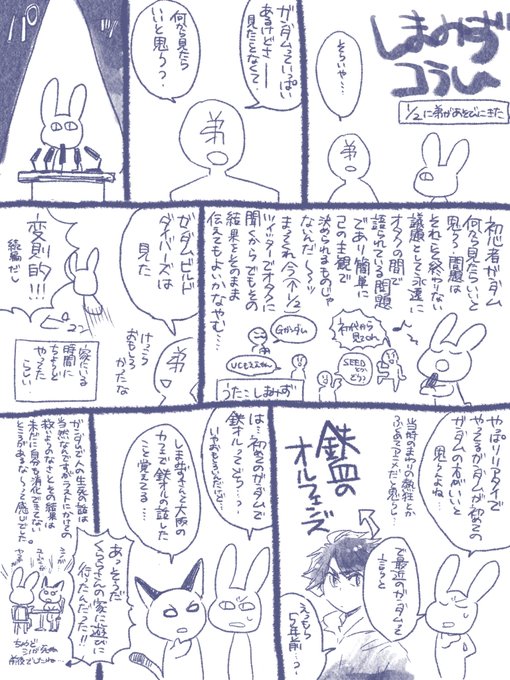 しみずコラム
1/2に弟があそびにきた
そういや…
弟
ガンダムっていっぱい
あるけどさー
見たことなくて、
何から見たら
いいと思う?
弟
パ
初心者ガンダム
何から見たらいいと
思う?問題は
それこそ終わりない
議題として永遠に
オタクの間で
語られている問題
であり簡単に
この主観で
決められるものじゃ
ないんだ〜〜ッ
まってくれ今(1/2)
ツイッターでオタクに
聞くからでもその
結果をそのまま
伝えてもよいかなやむ…
初代から
見てこれ
SEED
Gガンダム
うた:しみず
ガンダムビルド
ダイバーズは
見た
けっこう
おもしろ
かったな
弟
変則的!!!
続編だし
家にいる
時間に
ちょうど
やってた
らしい
やっぱリアタイで
やってるガンダムが初めての
ガンダムの方がいいと
思うよね、
当時のまわりの熱狂とか
ふくめてアニメだと思うし…
で最近のガンダムって
言うと
鉄血の
オルフェンズ
えっもう
5年前…?
は…初めてのガンダムで
鉄オルってどう…?
いやおもろいんだけど…
しみずさんと大阪の
カフェで鉄オルの話した
こと覚えてる…
あっそうだ
くららさんの家に遊びに
行ったんだった!!
ガンダムで人の生死の話は
当然なんですがラストにかけての
救いようのなさとその結果は
未だに自分も消化できてない
ところがあるな〜って感じでした。
ちょうど
シノが死ぬ
前後でしたね…